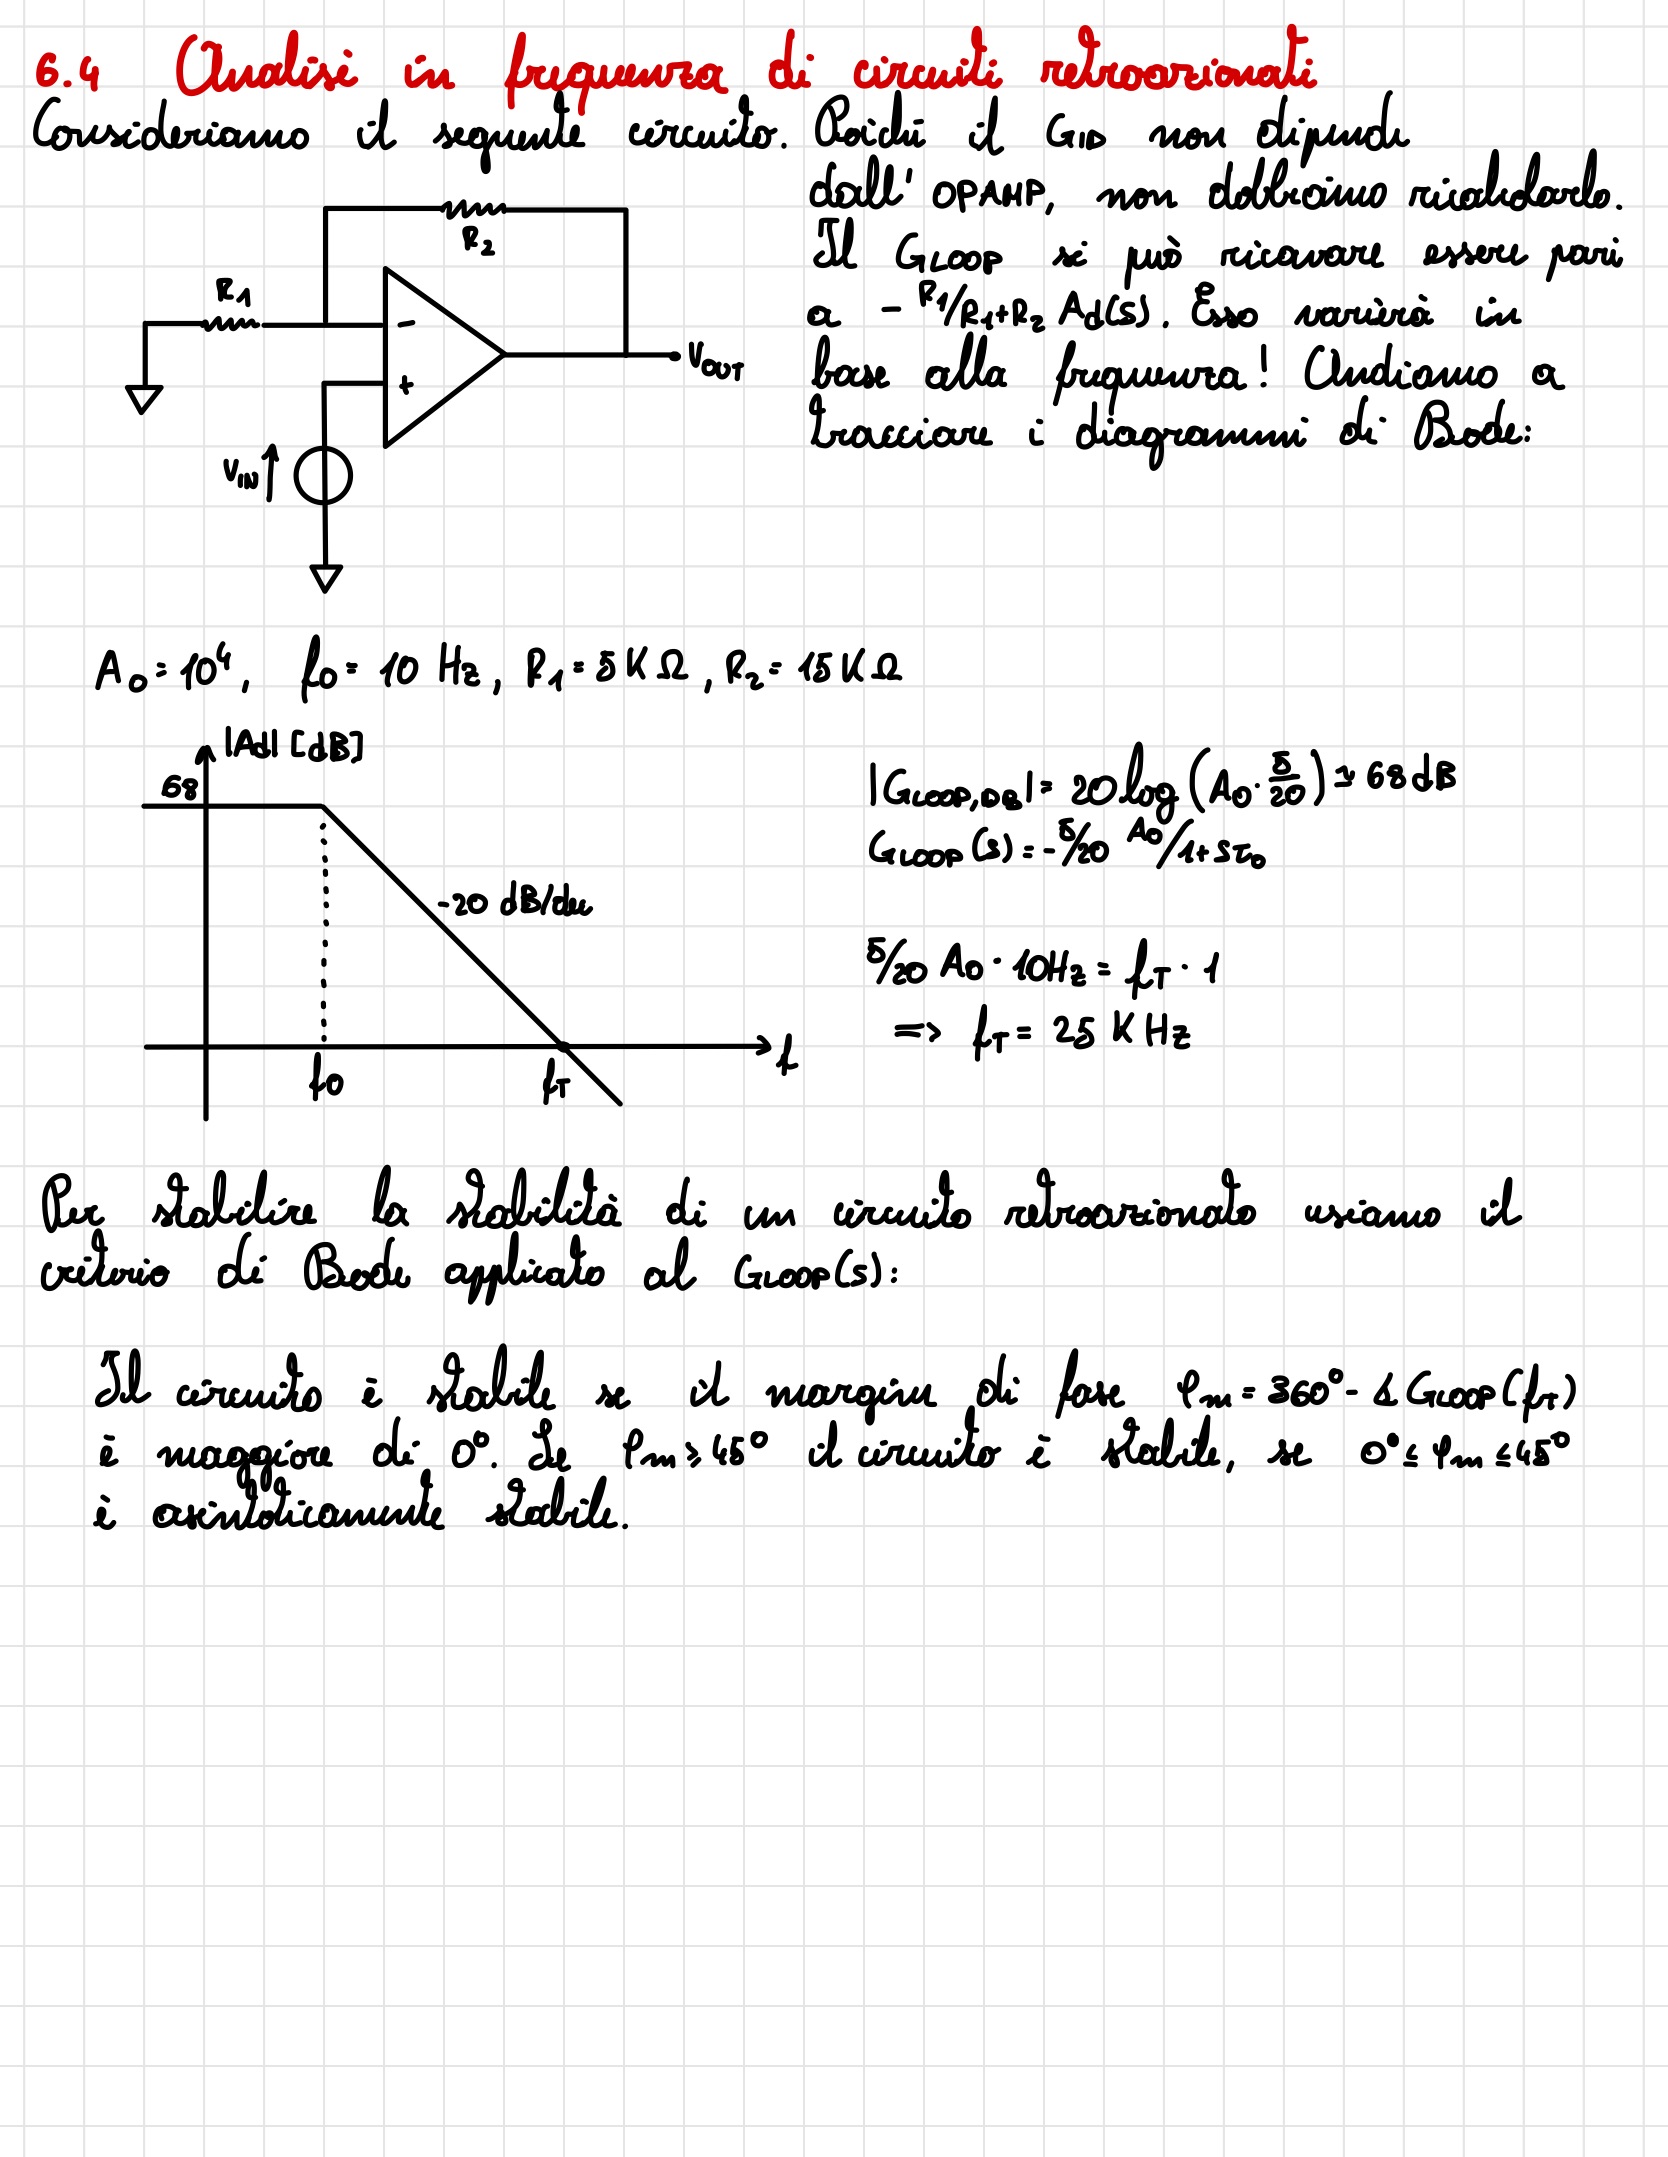 6.4 Analisi in frequenza di circuiti retroazionati
Consideriamo il seguente circuito. Poiché il GID non dipende
dall' OPAMP, non dobbiamo ricalcolarlo.
Il GLOOP si può ricavare essere pari
a - R1/R1+R2 Ad(s). Esso varierà in
base alla frequenza! Andiamo a
tracciare i diagrammi di Bode:
R2
R1
-
+
VOUT
VIN
A0 = 10⁴, f0 = 10 Hz, R1 = 5KΩ, R2 = 15KΩ
|Ad| [dB]
68
-20 dB/dec
f0
fT
f
|GLOOP,DB| = 20 log (A0 · 5/20) ≃ 68 dB
GLOOP(s) = - 5/20 A0/1+sτ0
5/20 A0 · 10Hz = fT · 1
=> fT = 25 KHz
Per stabilire la stabilità di un circuito retroazionato usiamo il
criterio di Bode applicato al GLOOP(s):
Il circuito è stabile se il margine di fase φm = 360° - ∡ GLOOP(fT)
è maggiore di 0°. Se φm ≥ 45° il circuito è stabile, se 0° ≤ φm ≤ 45°
è asintoticamente stabile.